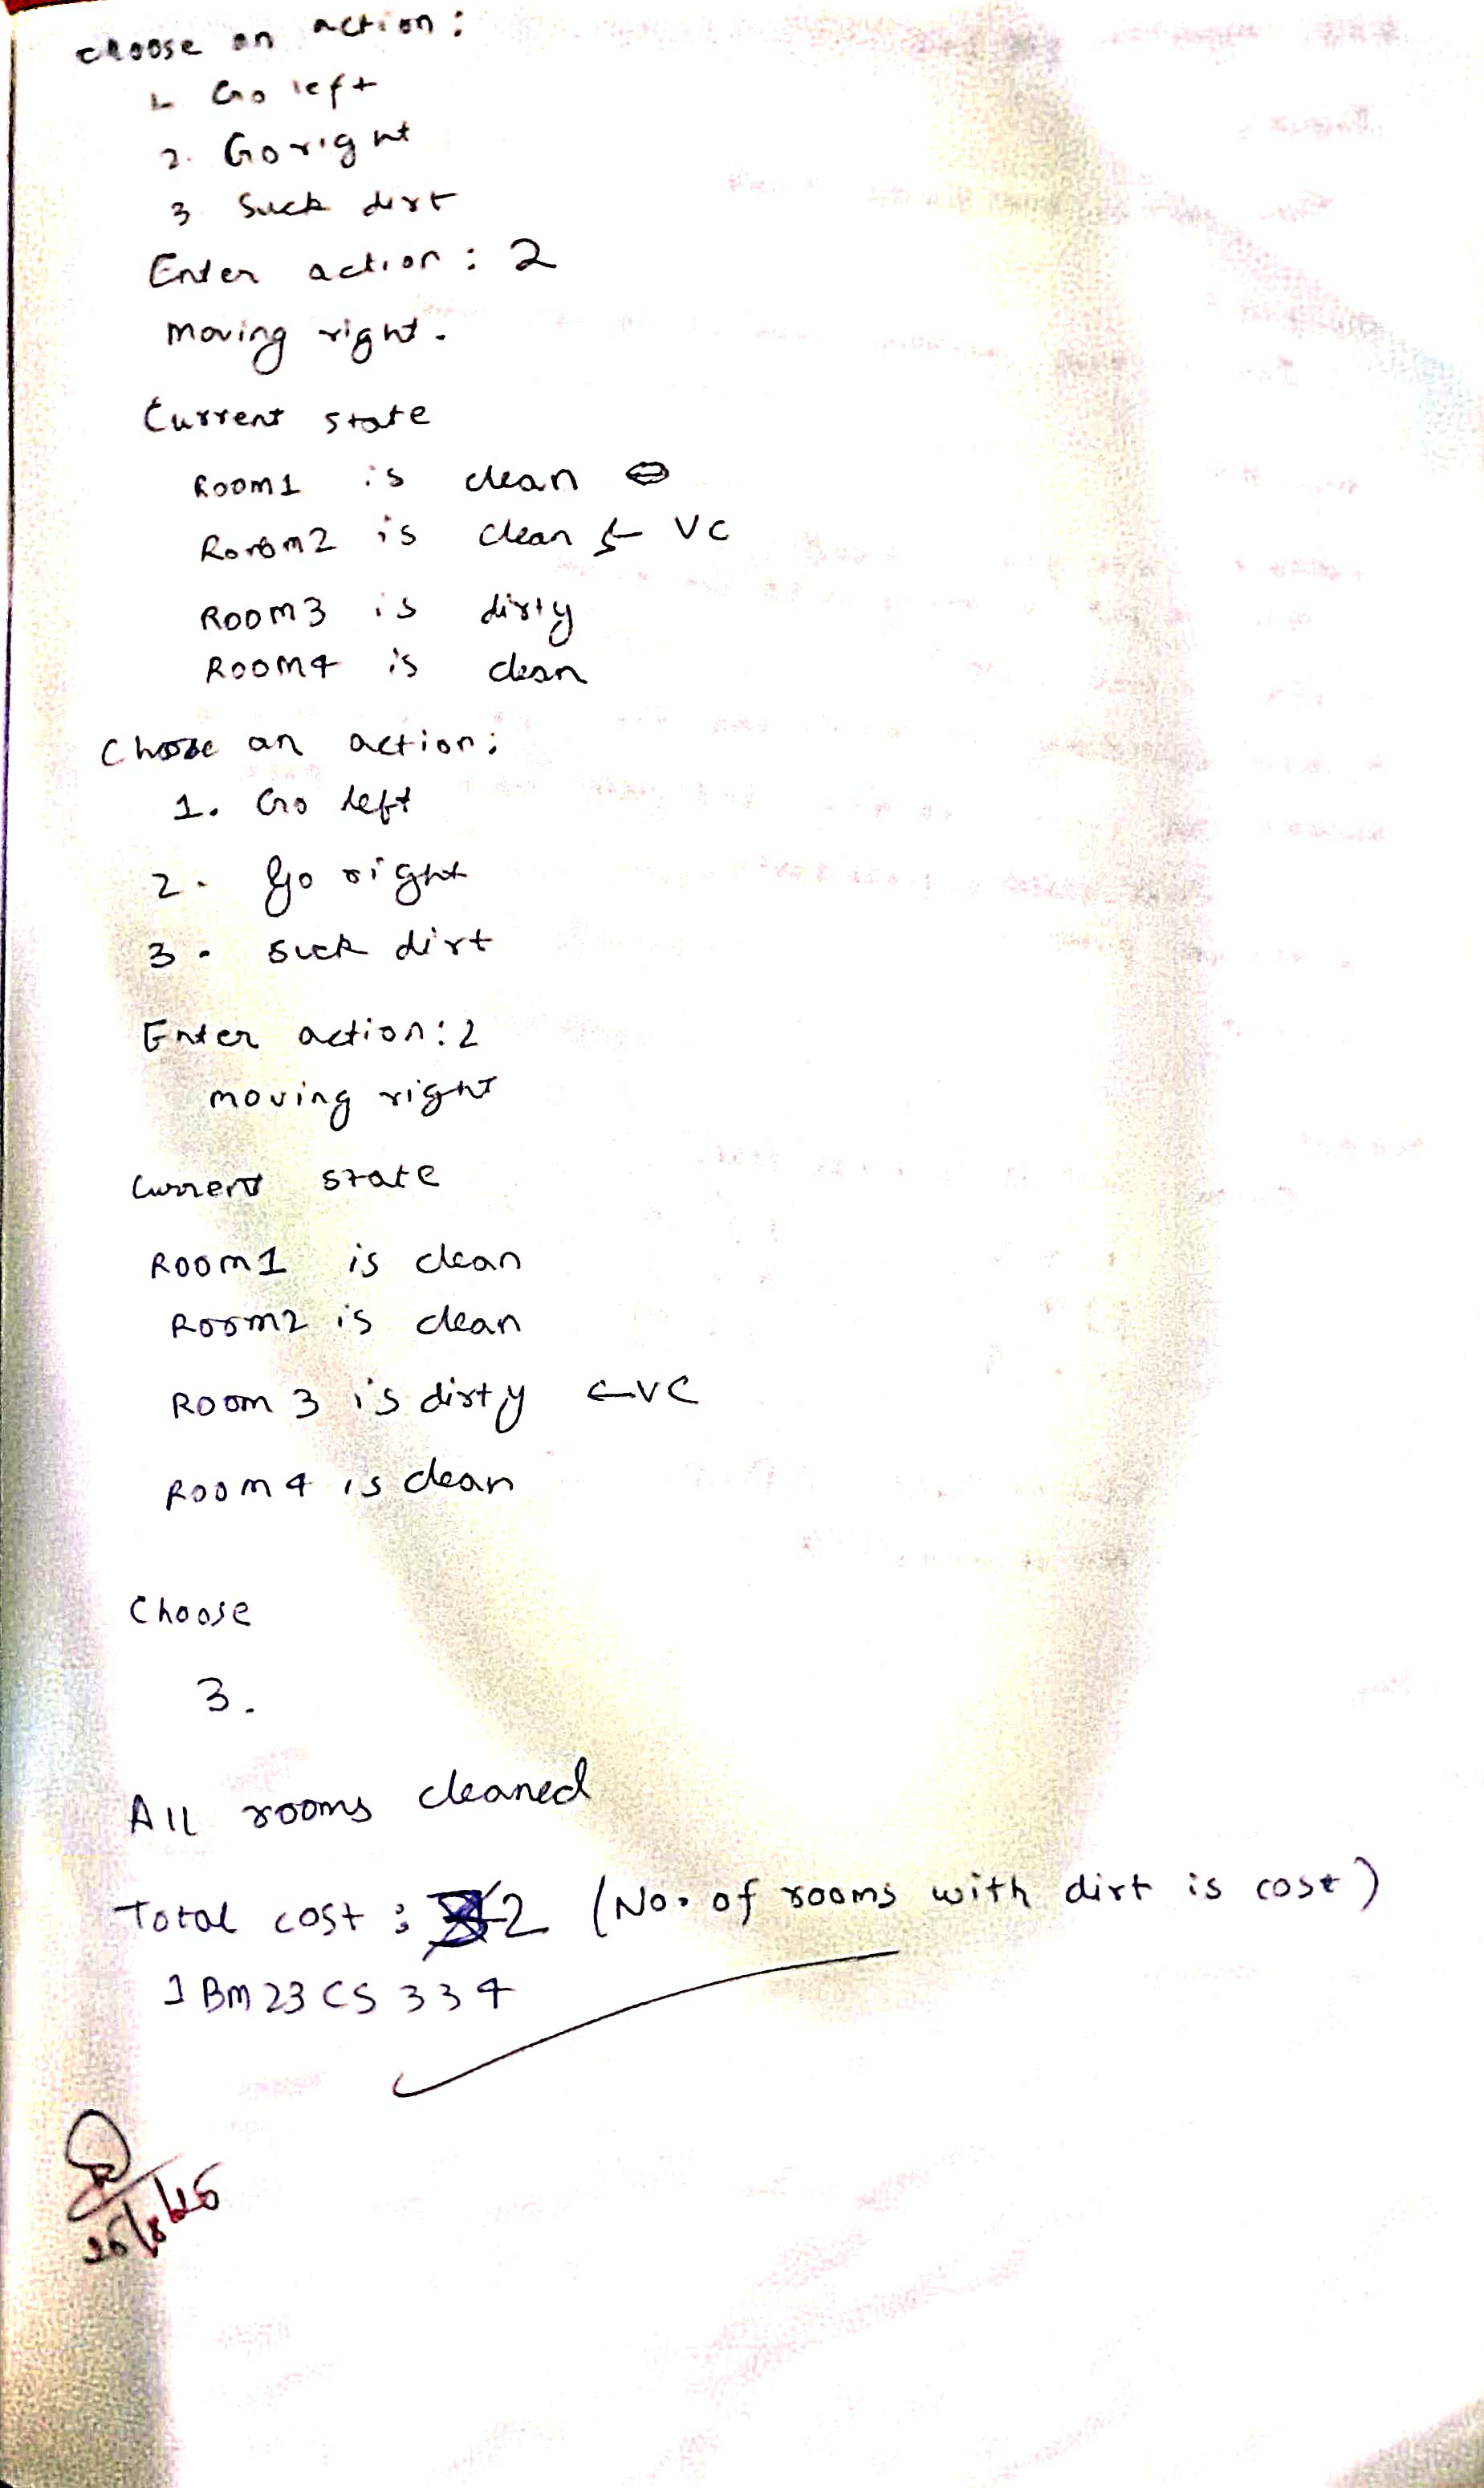 choose an action :
1. Go left
2. Go right
3 Suck dirt
Enter action : 2
moving right.
Current state
Room1 is clean
Room2 is clean ← VC
Room3 is dirty
Room4 is clean
Choose an action:
1. Go left
2. Go right
3. Suck dirt
Enter action: 2
moving right
Current state
Room1 is clean
Room2 is clean
Room 3 is dirty ← VC
Room 4 is clean
Choose
3.
All rooms cleaned
Total cost : 2 (No. of rooms with dirt is cost)
1BM23CS334